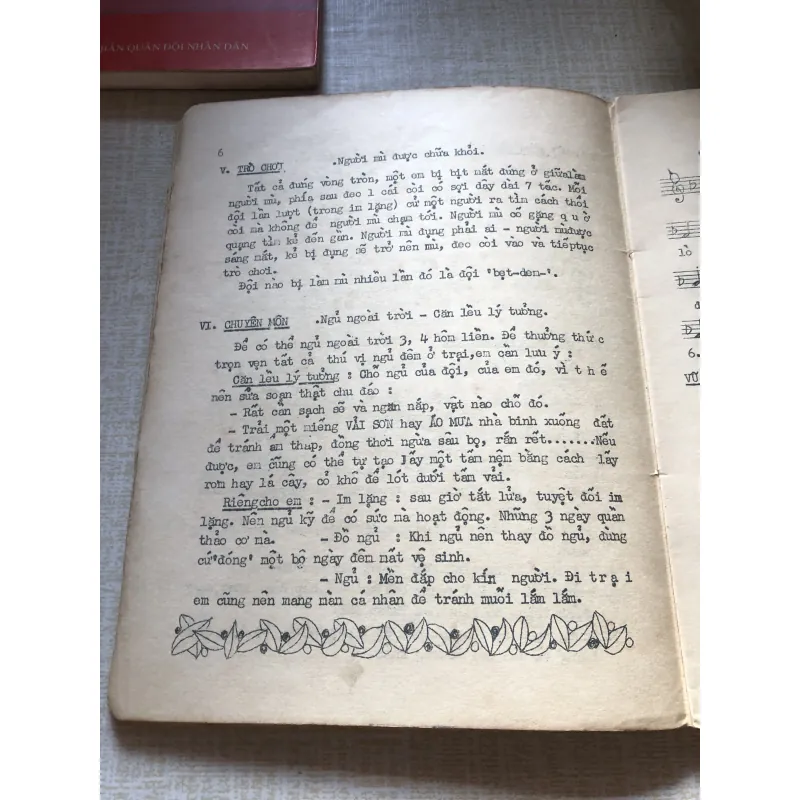 BẢN QUÂN ĐỘI NHÂN DÂN
6
V. TRÒ CHƠI .Người mù được chữa khỏi.
Tất cả đứng vòng tròn, một em bị bịt mắt đứng ở giữalàm
người mù, phía sau đeo 1 cái còi có sợi dây dài 7 tấc. Mỗi
đội lần lượt (trong im lặng) cử một người ra tìm cách thổi
còi mà không để người mù chạm tới. Người mù cố gắng q u ờ
quạng tìm kẻ đến gần. Người mù đụng phải ai - người mùđược
sáng mắt, kẻ bị đụng sẽ trở nên mù, đeo còi vào và tiếptục
trò chơi.
Đội nào bị làm mù nhiều lần đó là đội 'bẹt-dem-'.
VI. CHUYÊN MÔN .Ngủ ngoài trời - Căn lều lý tưởng.
Để có thể ngủ ngoài trời 3, 4 hôm liền. Để thưởng thức
trọn vẹn tất cả thú vị ngủ đêm ở trại,em cần lưu ý :
Căn lều lý tưởng : Chỗ ngủ của đội, của em đó, vì t h ế
nên sửa soạn thật chu đáo :
- Rất cần sạch sẽ và ngăn nắp, vật nào chỗ đó.
- Trải một miếng VẢI SƠN hay ÁO MƯA nhà binh xuống đất
để tránh ẩm thấp, đồng thời ngừa sâu bọ, rắn rết.......Nếu
được, em cũng có thể tự tạo lấy một tấm nệm bằng cách lấy
rơm hay lá cây, cỏ khô để lót dưới tấm vải.
Riêngcho em : - Im lặng : sau giờ tắt lửa, tuyệt đối im
lặng. Nên ngủ kỹ để có sức mà hoạt động. Những 3 ngày quần
thảo cơ mà. - Đồ ngủ : Khi ngủ nên thay đồ ngủ, đừng
cứ"đóng" một bộ ngày đêm mất vệ sinh.
- Ngủ : Mền đắp cho kín người. Đi t r ạ i
em cũng nên mang màn cá nhân để tránh muỗi lắm lắm.
lò
đ
6.
VỮ